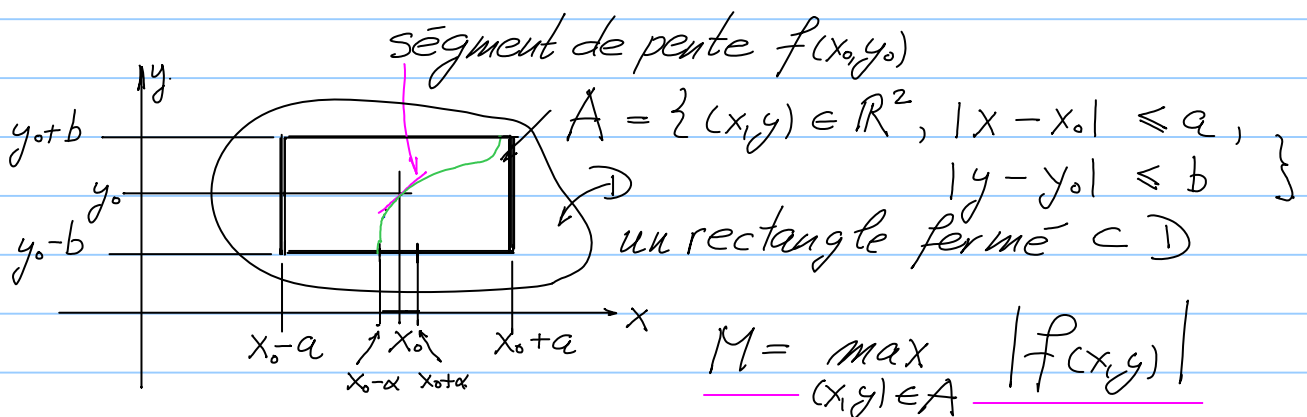 ségment de pente f(x₀,y₀)
y
y₀+b
A = { (x,y) ∈ ℝ², |x - x₀| ⩽ a,
|y - y₀| ⩽ b }
y₀
D
y₀-b
un rectangle fermé ⊂ D
x
x₀-a
x₀
x₀+a
x₀-α
x₀+α
M = max |f(x,y)|
(x,y) ∈ A